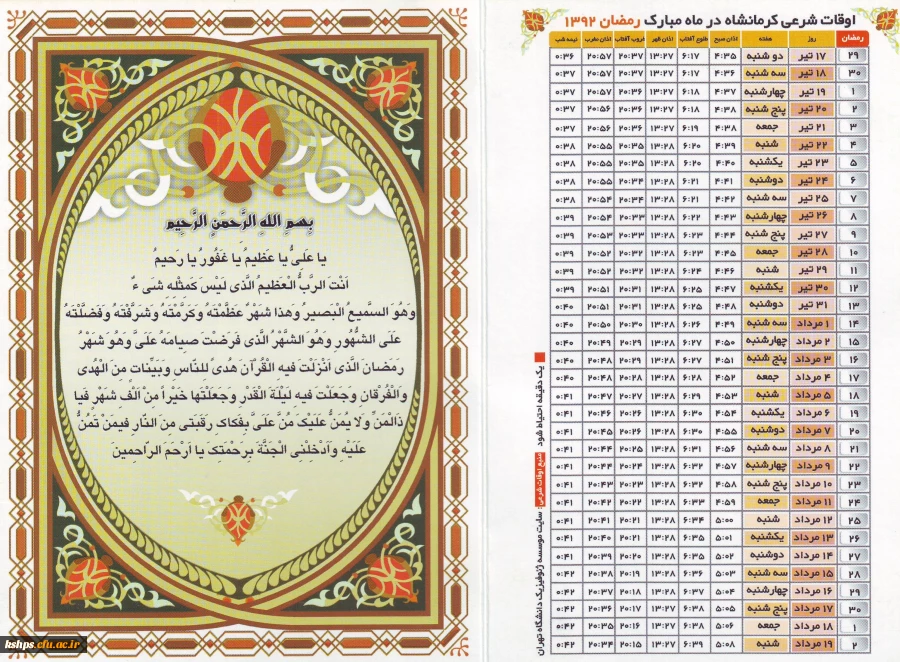 اوقات شرعی کرمانشاه در ماه مبارک رمضان ۱۳۹۲
رمضان روز هفته اذان صبح طلوع آفتاب اذان ظهر غروب آفتاب اذان مغرب نیمه شب
۲۹ ۱۷ تیر دو شنبه ۴:۳۵ ۶:۱۷ ۱۳:۲۷ ۲۰:۳۷ ۲۰:۵۷ ۰:۳۶
۳۰ ۱۸ تیر سه شنبه ۴:۳۶ ۶:۱۷ ۱۳:۲۷ ۲۰:۳۷ ۲۰:۵۷ ۰:۳۷
۱ ۱۹ تیر چهارشنبه ۴:۳۷ ۶:۱۸ ۱۳:۲۷ ۲۰:۳۶ ۲۰:۵۷ ۰:۳۷
۲ ۲۰ تیر پنج شنبه ۴:۳۸ ۶:۱۸ ۱۳:۲۷ ۲۰:۳۶ ۲۰:۵۶ ۰:۳۷
۳ ۲۱ تیر جمعه ۴:۳۸ ۶:۱۹ ۱۳:۲۷ ۲۰:۳۶ ۲۰:۵۶ ۰:۳۷
۴ ۲۲ تیر شنبه ۴:۳۹ ۶:۲۰ ۱۳:۲۸ ۲۰:۳۵ ۲۰:۵۵ ۰:۳۸
۵ ۲۳ تیر یکشنبه ۴:۴۰ ۶:۲۰ ۱۳:۲۸ ۲۰:۳۵ ۲۰:۵۵ ۰:۳۸
۶ ۲۴ تیر دوشنبه ۴:۴۱ ۶:۲۱ ۱۳:۲۸ ۲۰:۳۴ ۲۰:۵۵ ۰:۳۸
۷ ۲۵ تیر سه شنبه ۴:۴۲ ۶:۲۱ ۱۳:۲۸ ۲۰:۳۴ ۲۰:۵۴ ۰:۳۸
۸ ۲۶ تیر چهارشنبه ۴:۴۳ ۶:۲۲ ۱۳:۲۸ ۲۰:۳۳ ۲۰:۵۴ ۰:۳۹
۹ ۲۷ تیر پنج شنبه ۴:۴۴ ۶:۲۳ ۱۳:۲۸ ۲۰:۳۳ ۲۰:۵۳ ۰:۳۹
۱۰ ۲۸ تیر جمعه ۴:۴۵ ۶:۲۳ ۱۳:۲۸ ۲۰:۳۲ ۲۰:۵۲ ۰:۳۹
۱۱ ۲۹ تیر شنبه ۴:۴۶ ۶:۲۴ ۱۳:۲۸ ۲۰:۳۲ ۲۰:۵۲ ۰:۳۹
۱۲ ۳۰ تیر یکشنبه ۴:۴۷ ۶:۲۵ ۱۳:۲۸ ۲۰:۳۱ ۲۰:۵۱ ۰:۳۹
۱۳ ۳۱ تیر دوشنبه ۴:۴۸ ۶:۲۵ ۱۳:۲۸ ۲۰:۳۱ ۲۰:۵۱ ۰:۴۰
۱۴ ۱ مرداد سه شنبه ۴:۴۹ ۶:۲۶ ۱۳:۲۸ ۲۰:۳۰ ۲۰:۵۰ ۰:۴۰
۱۵ ۲ مرداد چهارشنبه ۴:۵۰ ۶:۲۷ ۱۳:۲۸ ۲۰:۲۹ ۲۰:۴۹ ۰:۴۰
۱۶ ۳ مرداد پنج شنبه ۴:۵۱ ۶:۲۷ ۱۳:۲۸ ۲۰:۲۹ ۲۰:۴۸ ۰:۴۰
۱۷ ۴ مرداد جمعه ۴:۵۲ ۶:۲۸ ۱۳:۲۸ ۲۰:۲۸ ۲۰:۴۸ ۰:۴۰
۱۸ ۵ مرداد شنبه ۴:۵۳ ۶:۲۹ ۱۳:۲۸ ۲۰:۲۷ ۲۰:۴۷ ۰:۴۱
۱۹ ۶ مرداد یکشنبه ۴:۵۴ ۶:۳۰ ۱۳:۲۸ ۲۰:۲۶ ۲۰:۴۶ ۰:۴۱
۲۰ ۷ مرداد دوشنبه ۴:۵۵ ۶:۳۰ ۱۳:۲۸ ۲۰:۲۶ ۲۰:۴۵ ۰:۴۱
۲۱ ۸ مرداد سه شنبه ۴:۵۶ ۶:۳۱ ۱۳:۲۸ ۲۰:۲۵ ۲۰:۴۴ ۰:۴۱
۲۲ ۹ مرداد چهارشنبه ۴:۵۷ ۶:۳۲ ۱۳:۲۸ ۲۰:۲۴ ۲۰:۴۴ ۰:۴۱
۲۳ ۱۰ مرداد پنج شنبه ۴:۵۸ ۶:۳۲ ۱۳:۲۸ ۲۰:۲۳ ۲۰:۴۳ ۰:۴۱
۲۴ ۱۱ مرداد جمعه ۴:۵۹ ۶:۳۳ ۱۳:۲۸ ۲۰:۲۲ ۲۰:۴۲ ۰:۴۱
۲۵ ۱۲ مرداد شنبه ۵:۰۰ ۶:۳۴ ۱۳:۲۸ ۲۰:۲۱ ۲۰:۴۱ ۰:۴۱
۲۶ ۱۳ مرداد یکشنبه ۵:۰۱ ۶:۳۵ ۱۳:۲۸ ۲۰:۲۱ ۲۰:۴۰ ۰:۴۱
۲۷ ۱۴ مرداد دوشنبه ۵:۰۲ ۶:۳۵ ۱۳:۲۸ ۲۰:۲۰ ۲۰:۳۹ ۰:۴۱
۲۸ ۱۵ مرداد سه شنبه ۵:۰۳ ۶:۳۶ ۱۳:۲۸ ۲۰:۱۹ ۲۰:۳۸ ۰:۴۲
۲۹ ۱۶ مرداد چهارشنبه ۵:۰۴ ۶:۳۷ ۱۳:۲۸ ۲۰:۱۸ ۲۰:۳۷ ۰:۴۲
۳۰ ۱۷ مرداد پنج شنبه ۵:۰۵ ۶:۳۸ ۱۳:۲۷ ۲۰:۱۷ ۲۰:۳۶ ۰:۴۲
۱ ۱۸ مرداد جمعه ۵:۰۶ ۶:۳۸ ۱۳:۲۷ ۲۰:۱۶ ۲۰:۳۵ ۰:۴۲
۲ ۱۹ مرداد شنبه ۵:۰۸ ۶:۳۹ ۱۳:۲۷ ۲۰:۱۵ ۲۰:۳۴ ۰:۴۲
یک دقیقه احتیاط شود
منبع اوقات شرعی: سایت موسسه ژئوفیزیک دانشگاه تهران
بِسْمِ اللهِ الرَّحْمَنِ الرَّحِيمِ
يا عَلىُّ يا عَظيمُ يا غَفُورُ يا رَحيمُ
اَنْتَ الرَّبُّ الْعَظيمُ الَّذى لَيْسَ كَمِثْلِهِ شَىءٌ
وَهُوَ السَّميعُ الْبَصيرُ وَهذا شَهْرٌ عَظَّمْتَهُ وَكَرَّمْتَهُ وَشَرَّفْتَهُ وَفَضَّلْتَهُ
عَلَى الشُّهُورِ وَهُوَ الشَّهْرُ الَّذى فَرَضْتَ صِيامَهُ عَلَىَّ وَهُوَ شَهْرُ
رَمَضانَ الَّذى اَنْزَلْتَ فيهِ الْقُرْآنَ هُدىً لِلنّاسِ وَبَيِّناتٍ مِنَ الْهُدى
وَالْفُرْقانِ وَجَعَلْتَ فيهِ لَيْلَةَ الْقَدْرِ وَجَعَلْتَها خَيْراً مِنْ اَلْفِ شَهْرٍ فَيا
ذَالْمَنِّ وَلا يُمَنُّ عَلَيْكَ مُنَّ عَلَىَّ بِفَكاكِ رَقَبَتى مِنَ النّارِ فيمَنْ تَمُنُّ
عَلَيْهِ وَاَدْخِلْنِى الْجَنَّةَ بِرَحْمَتِكَ يا اَرْحَمَ الرّاحِمينَ
kshps.cfu.ac.ir